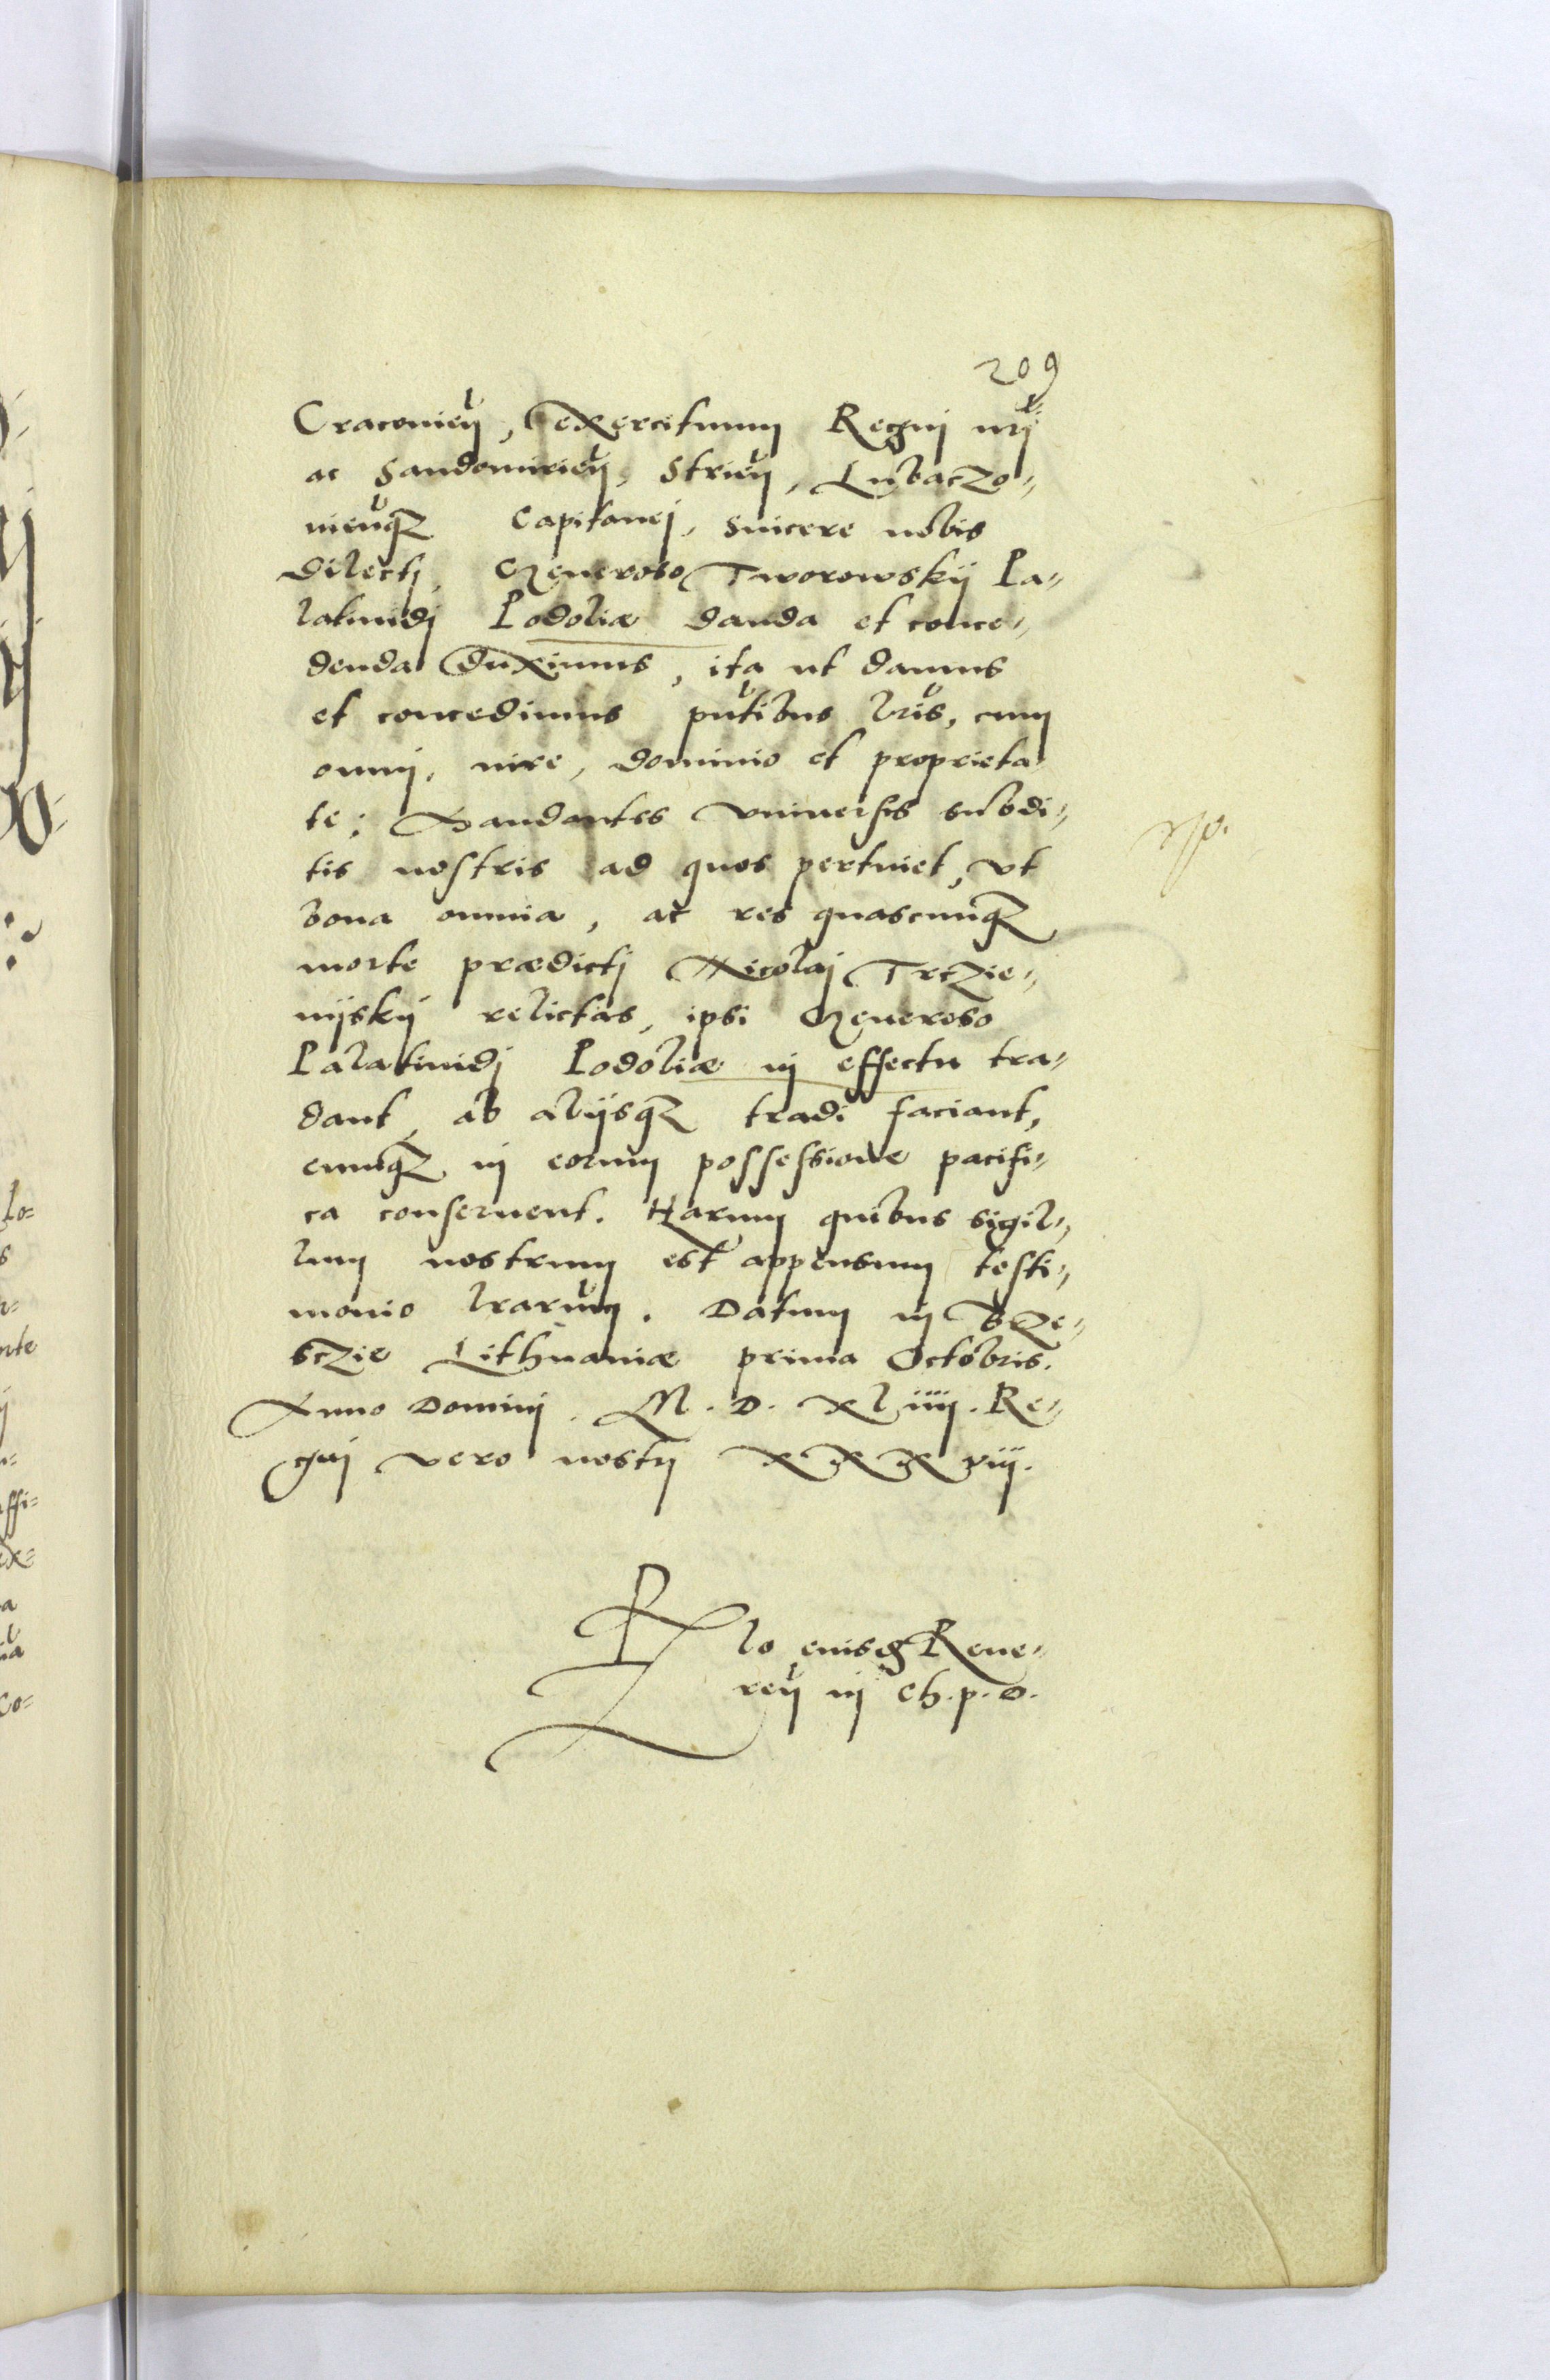 209
Craconien̄, exercituum Regni nr̄i
ac Sandomirien̄, Strien̄, Lubaczo-
nien̄q₃ Capitanei, sincere nobis
dilecti, Generoso Tworowskij Pa-
latinidj Podoliæ danda et conce-
denda duximus, ita ut damus
et concedimus pn̄tibus lr̄is, cum
omni, iure, dominio et proprieta
te; Mandantes vniuersis subdi-
tis nostris ad quos pertinet, vt
bona omnia, ac res quascunq₃
morte prædictj Nicolaj Trczie-
nijskij relictas, ipsi Generoso
Palatinidj Podoliæ in effectu tra-
dant, ab alijsq₃ tradi faciant,
eumq₃ in eorum possessione pacifi-
ca conseruent. Harum quibus sigil-
lum nostrum est appensum testi-
monio lrarūm. Datum in Brze-
sczie Lithuaniæ prima Octobris.
Anno Domini. M.D.xliiij. Re-
gni vero nostrj xxxviij.
lo
in Ch.p.o.